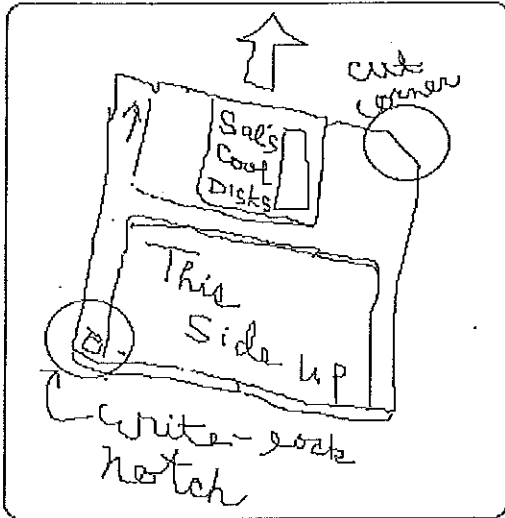 cut
corner
Sal's
Cool
Disks
This
Side up
write-lock
notch